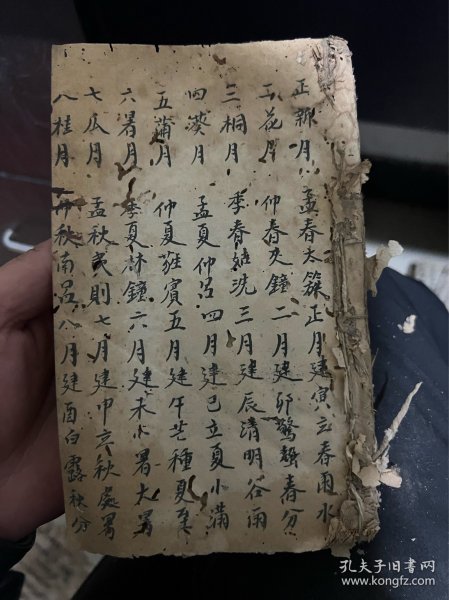 正新月 孟春太簇正月建寅立春雨水
二花月 仲春夾鐘二月建卯驚蟄春分
三桐月 季春姑洗三月建辰清明谷雨
四葵月 孟夏仲吕四月建巳立夏小滿
五蒲月 仲夏蕤賓五月建午芒種夏至
六暑月 季夏林鐘六月建未小暑大暑
七瓜月 孟秋夷則七月建申立秋處暑
八桂月 仲秋南吕八月建酉白露秋分
孔夫子旧书网
www.kongfz.com